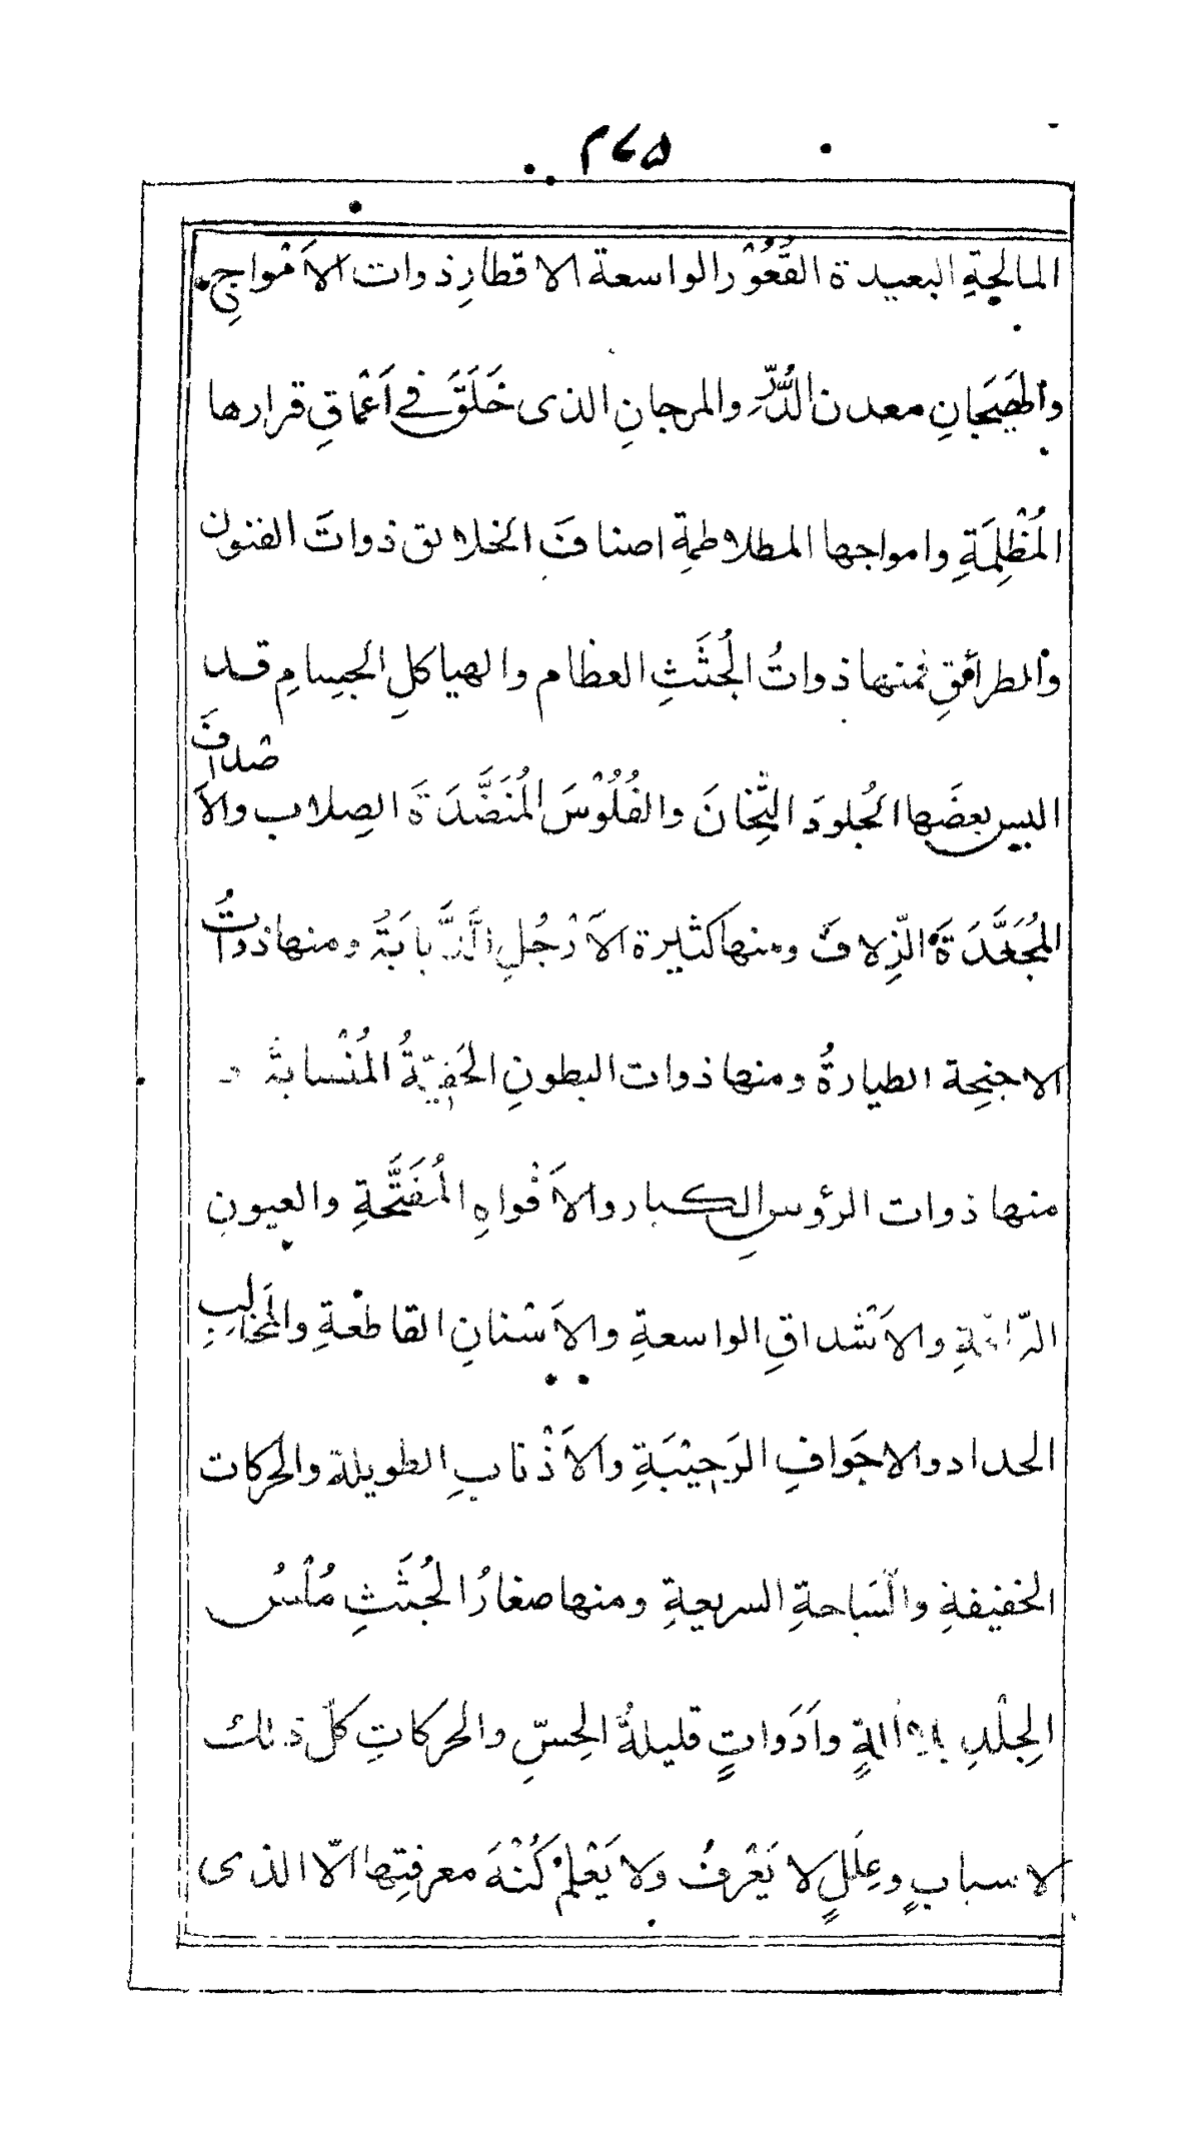 ٢٤٥
المالحةِ البعيدة القُعُوْر الواسعة الاقطارِ ذوات الاَمْواجِ
والهَيَجَانِ معدن الدُّرِّ والمرجانِ الذى خَلَقَ فى اَعْماقِ قرارها
المُظْلِمَةِ وامواجها المطلاطمةِ اصنافَ الخلائق ذواتَ الفنون
والطرائقِ فمنها ذواتُ الجُثَثِ العظام والهياكلِ الجسامِ قد
البس بعضَها الجُلودَ الثِّخانَ والفُلُوْسَ المُنَضَّدَةَ الصِلاب والاَصْدافَ
المُجَعَّدَةَ الزِّلافَ ومنها كثيرة الاَرْجُلِ الدَّبابَةُ ومنها ذواتُ
الاجنِحة الطيارةُ ومنها ذوات البطونِ الخَفِيّةُ المُنْسابةُ و
منها ذوات الرؤسِ الكبار والاَفْواهِ المُفَتَّحَةِ والعيونِ
والاَشْداقِ الواسعةِ والاَسْنانِ القاطعْةِ والمَخالِبِ
الحداد والاجَوافِ الرَحِيْبَةِ والاَذْنابِ الطويلة والحركات
الخفيفةِ والسَباحةِ السريعةِ ومنها صغارُ الجُثَثِ مُلْسُ
الجِلْدِ بلا الةٍ واَدَواتٍ قليلةُ الحِسِّ والحركاتِ كلّ ذلك
لاسبابٍ وعِلَلٍ لا يَعْرِفُ ولا يَعْلمُ كُنْهَ معرفتِها الّا الذى